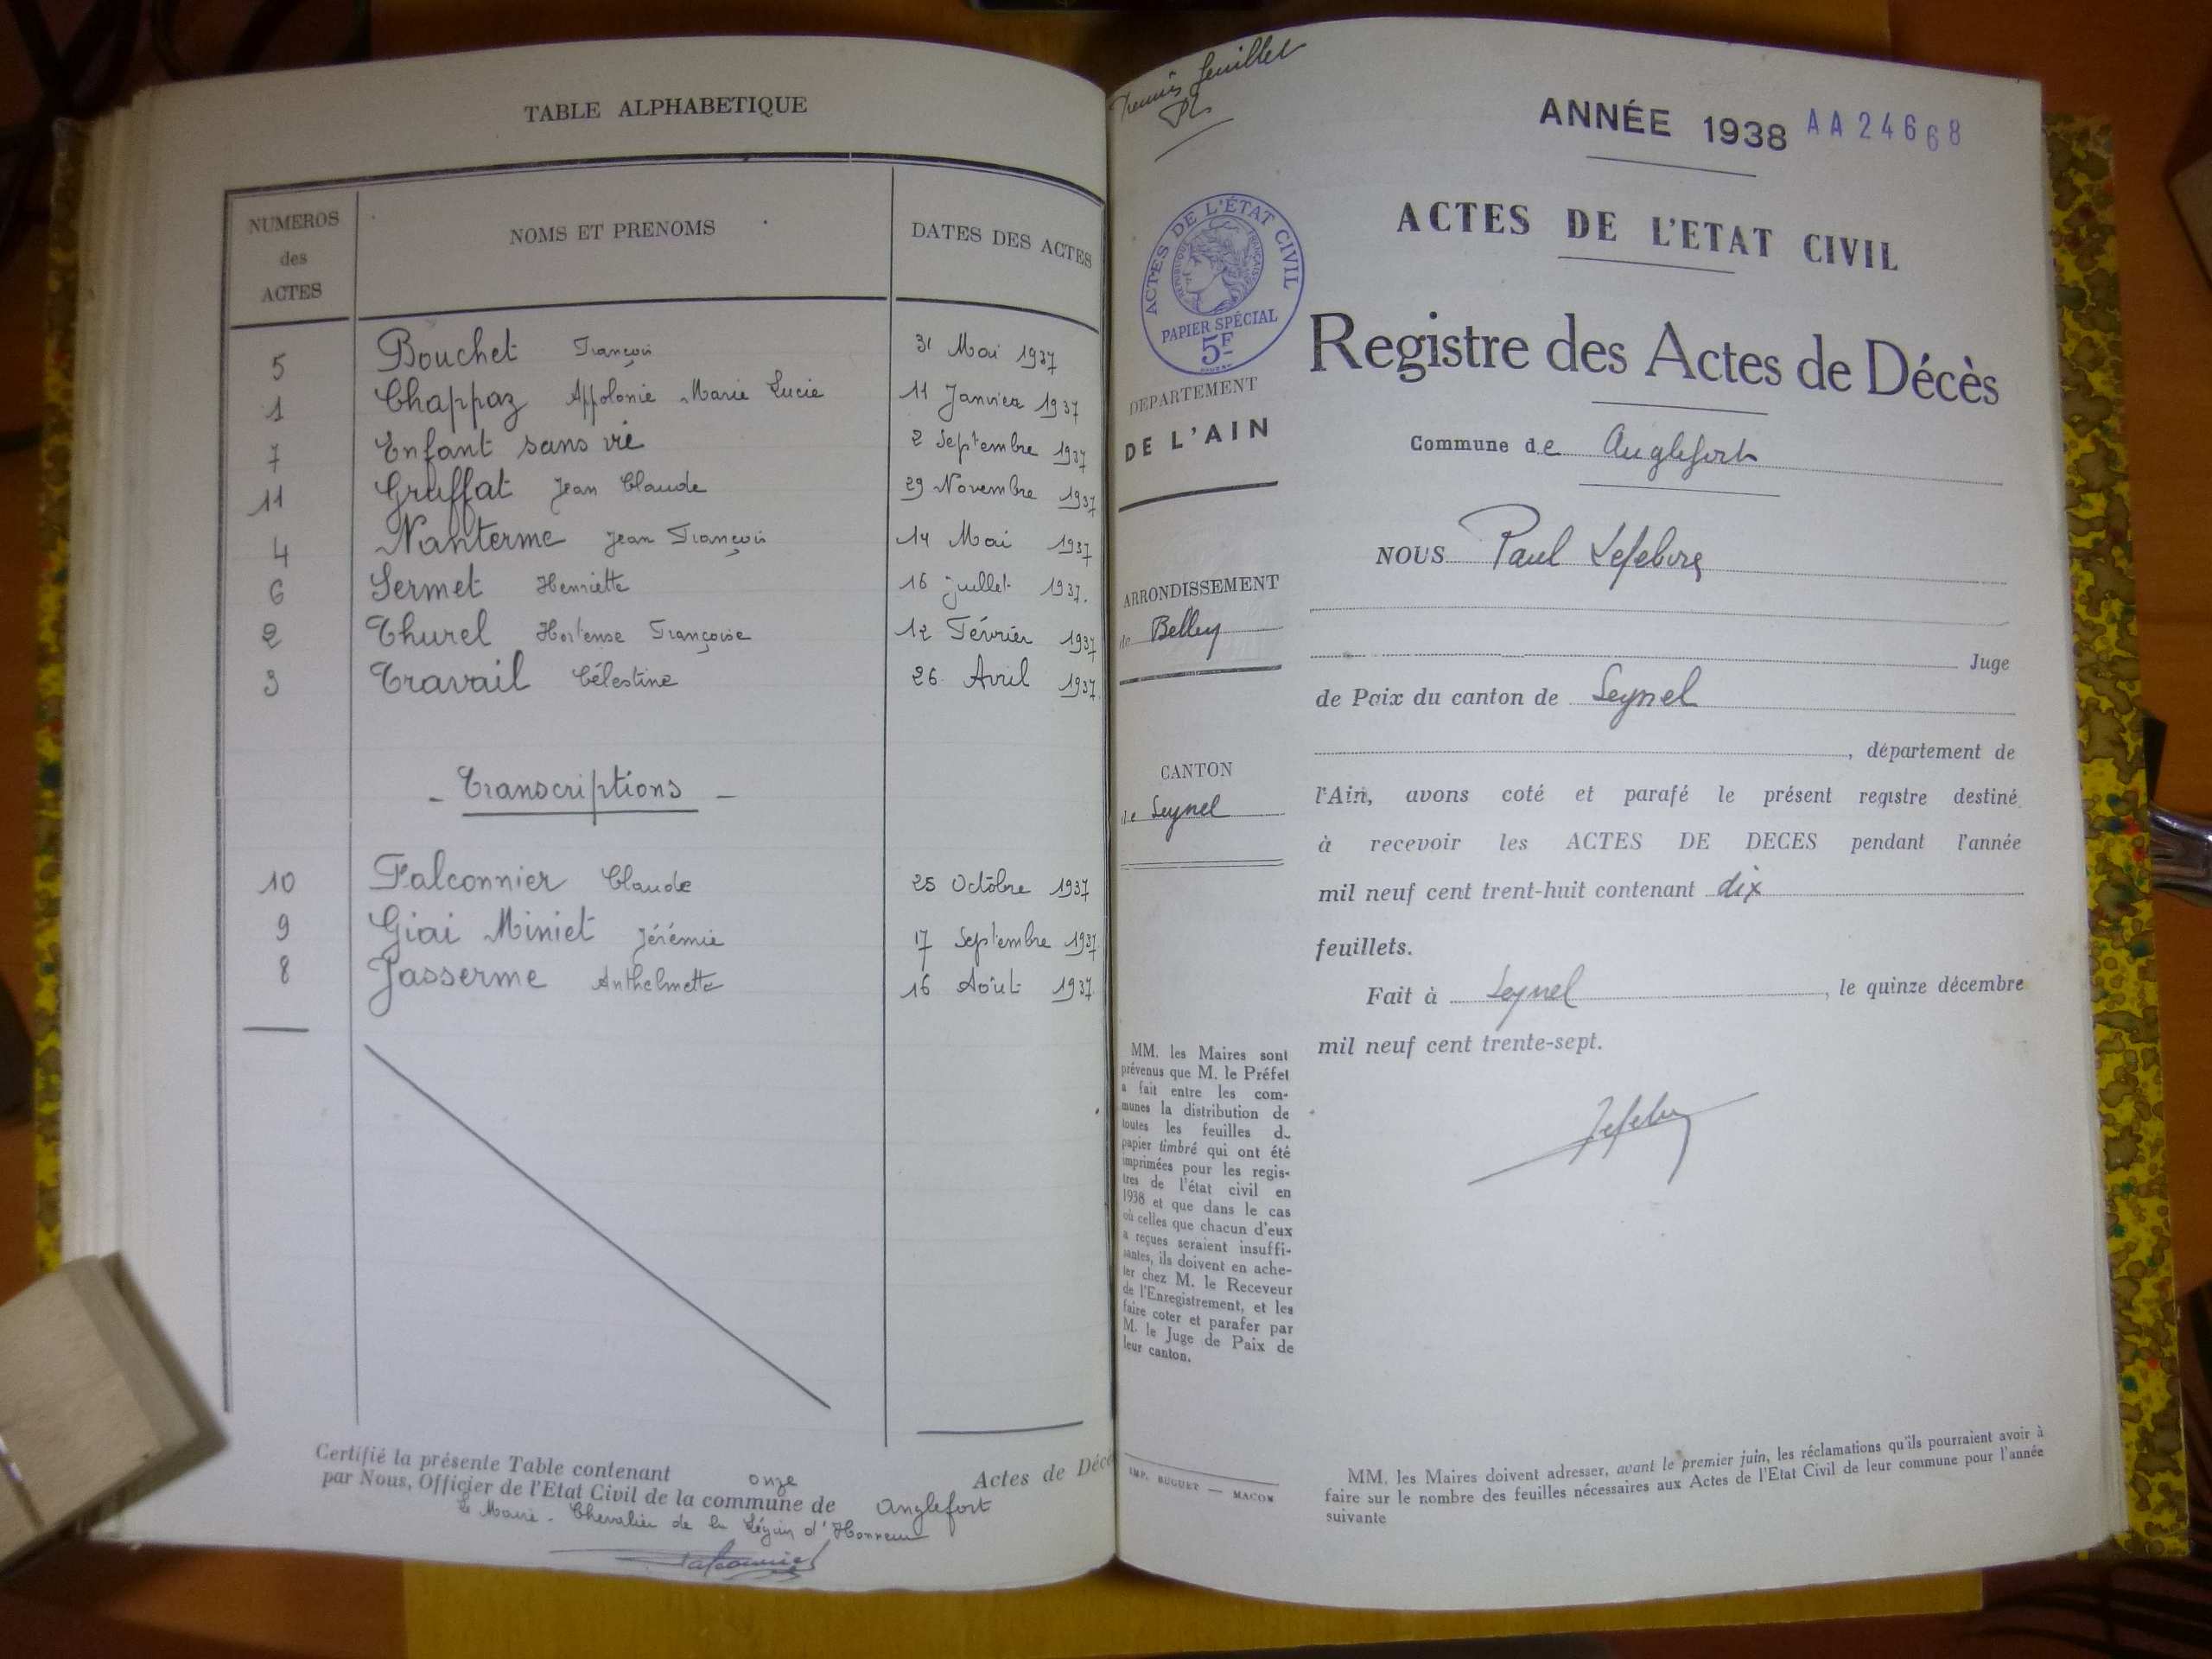 TABLE ALPHABETIQUE
NUMEROS des ACTES
NOMS ET PRENOMS
DATES DES ACTES
5 Bouchet François 31 Mai 1937
1 Chappaz Appolonie Marie Lucie 11 Janvier 1937
7 Enfant sans vie 2 Septembre 1937
11 Gruffat Jean Claude 29 Novembre 1937
4 Nanterme Jean François 14 Mai 1937
6 Sermet Henriette 16 juillet 1937.
2 Thurel Hortense Françoise 12 Février 1937
3 Travail Célestine 26 Avril 1937
- Transcriptions -
10 Falconnier Claude 25 Octôbre 1937
9 Giai Miniet Jérémie 17 Septembre 1937
8 Jasserme Anthelmette 16 Août 1937
Certifié la présente Table contenant onze Actes de Décè
par Nous, Officier de l'Etat Civil de la commune de Anglefort
Le Maire - Chevalier de la Légion d'Honneur
feuillet
ANNÉE 1938 AA24668
ACTES DE L'ÉTAT CIVIL
RÉPUBLIQUE FRANÇAISE
PAPIER SPÉCIAL
5F
ACTES DE L'ETAT CIVIL
Registre des Actes de Décès
DEPARTEMENT
DE L'AIN
ARRONDISSEMENT
de Belley
CANTON
de Seyssel
MM. les Maires sont
prévenus que M. le Préfet
a fait entre les com-
munes la distribution de
toutes les feuilles du
papier timbré qui ont été
imprimées pour les regis-
tres de l'état civil en
1938 et que dans le cas
où celles que chacun d'eux
a reçues seraient insuffi-
santes, ils doivent en ache-
ter chez M. le Receveur
de l'Enregistrement, et les
faire coter et parafer par
M. le Juge de Paix de
leur canton.
IMP. BUGUET — MACON
Commune de Anglefort
NOUS Paul Lefebvre
Juge
de Paix du canton de Seyssel
, département de
l'Ain, avons coté et parafé le présent registre destiné
à recevoir les ACTES DE DECES pendant l'année
mil neuf cent trent-huit contenant dix
feuillets.
Fait à Seyssel, le quinze décembre
mil neuf cent trente-sept.
Lefebvre
MM. les Maires doivent adresser, avant le premier juin, les réclamations qu'ils pourraient avoir à
faire sur le nombre des feuilles nécessaires aux Actes de l'Etat Civil de leur commune pour l'année
suivante